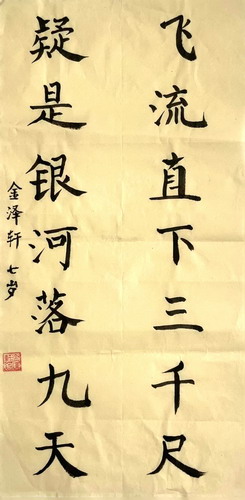 飞流直下三千尺
疑是银河落九天
金泽轩 七岁